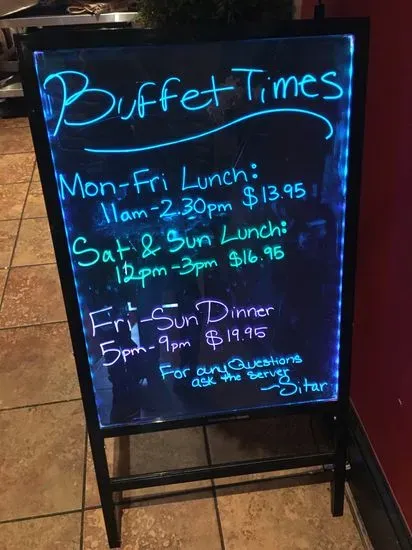 Buffet Times
Mon-Fri Lunch:
11am-2.30pm $13.95
Sat & Sun Lunch:
12pm-3pm $16.95
Fri-Sun Dinner
5pm-9pm $19.95
For any Questions
ask the server
~Sitar